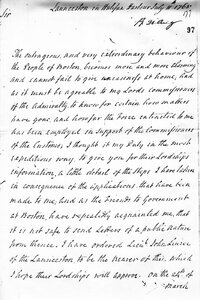 Sir
Launceston in Halifax Harbour July 11th 1768.
97
The outrageous, and very extraordinary behaviour of
the People of Boston, becomes more and more alarming
and cannot fail to give uneasiness at home, and
as it must be agreable to my Lords Commissioners
of the Admiralty to know for certain how matters
have gone, and how far the Force entrusted to me
has been employed in support of the Commissioners
of the Customs, I thought it my Duty in the most
expeditious way, to give you for their Lordships
information, a little detail of the Steps I have taken
in consequence of the applications that have been
made to me, and as the Servants to Government
at Boston, have repeatedly acquainted me, that
it is not safe to send Letters of a public nature
from thence, I have ordered Lieut. John
of the Launceston to be the bearer of this, which
I hope their Lordships will approve. On the
March